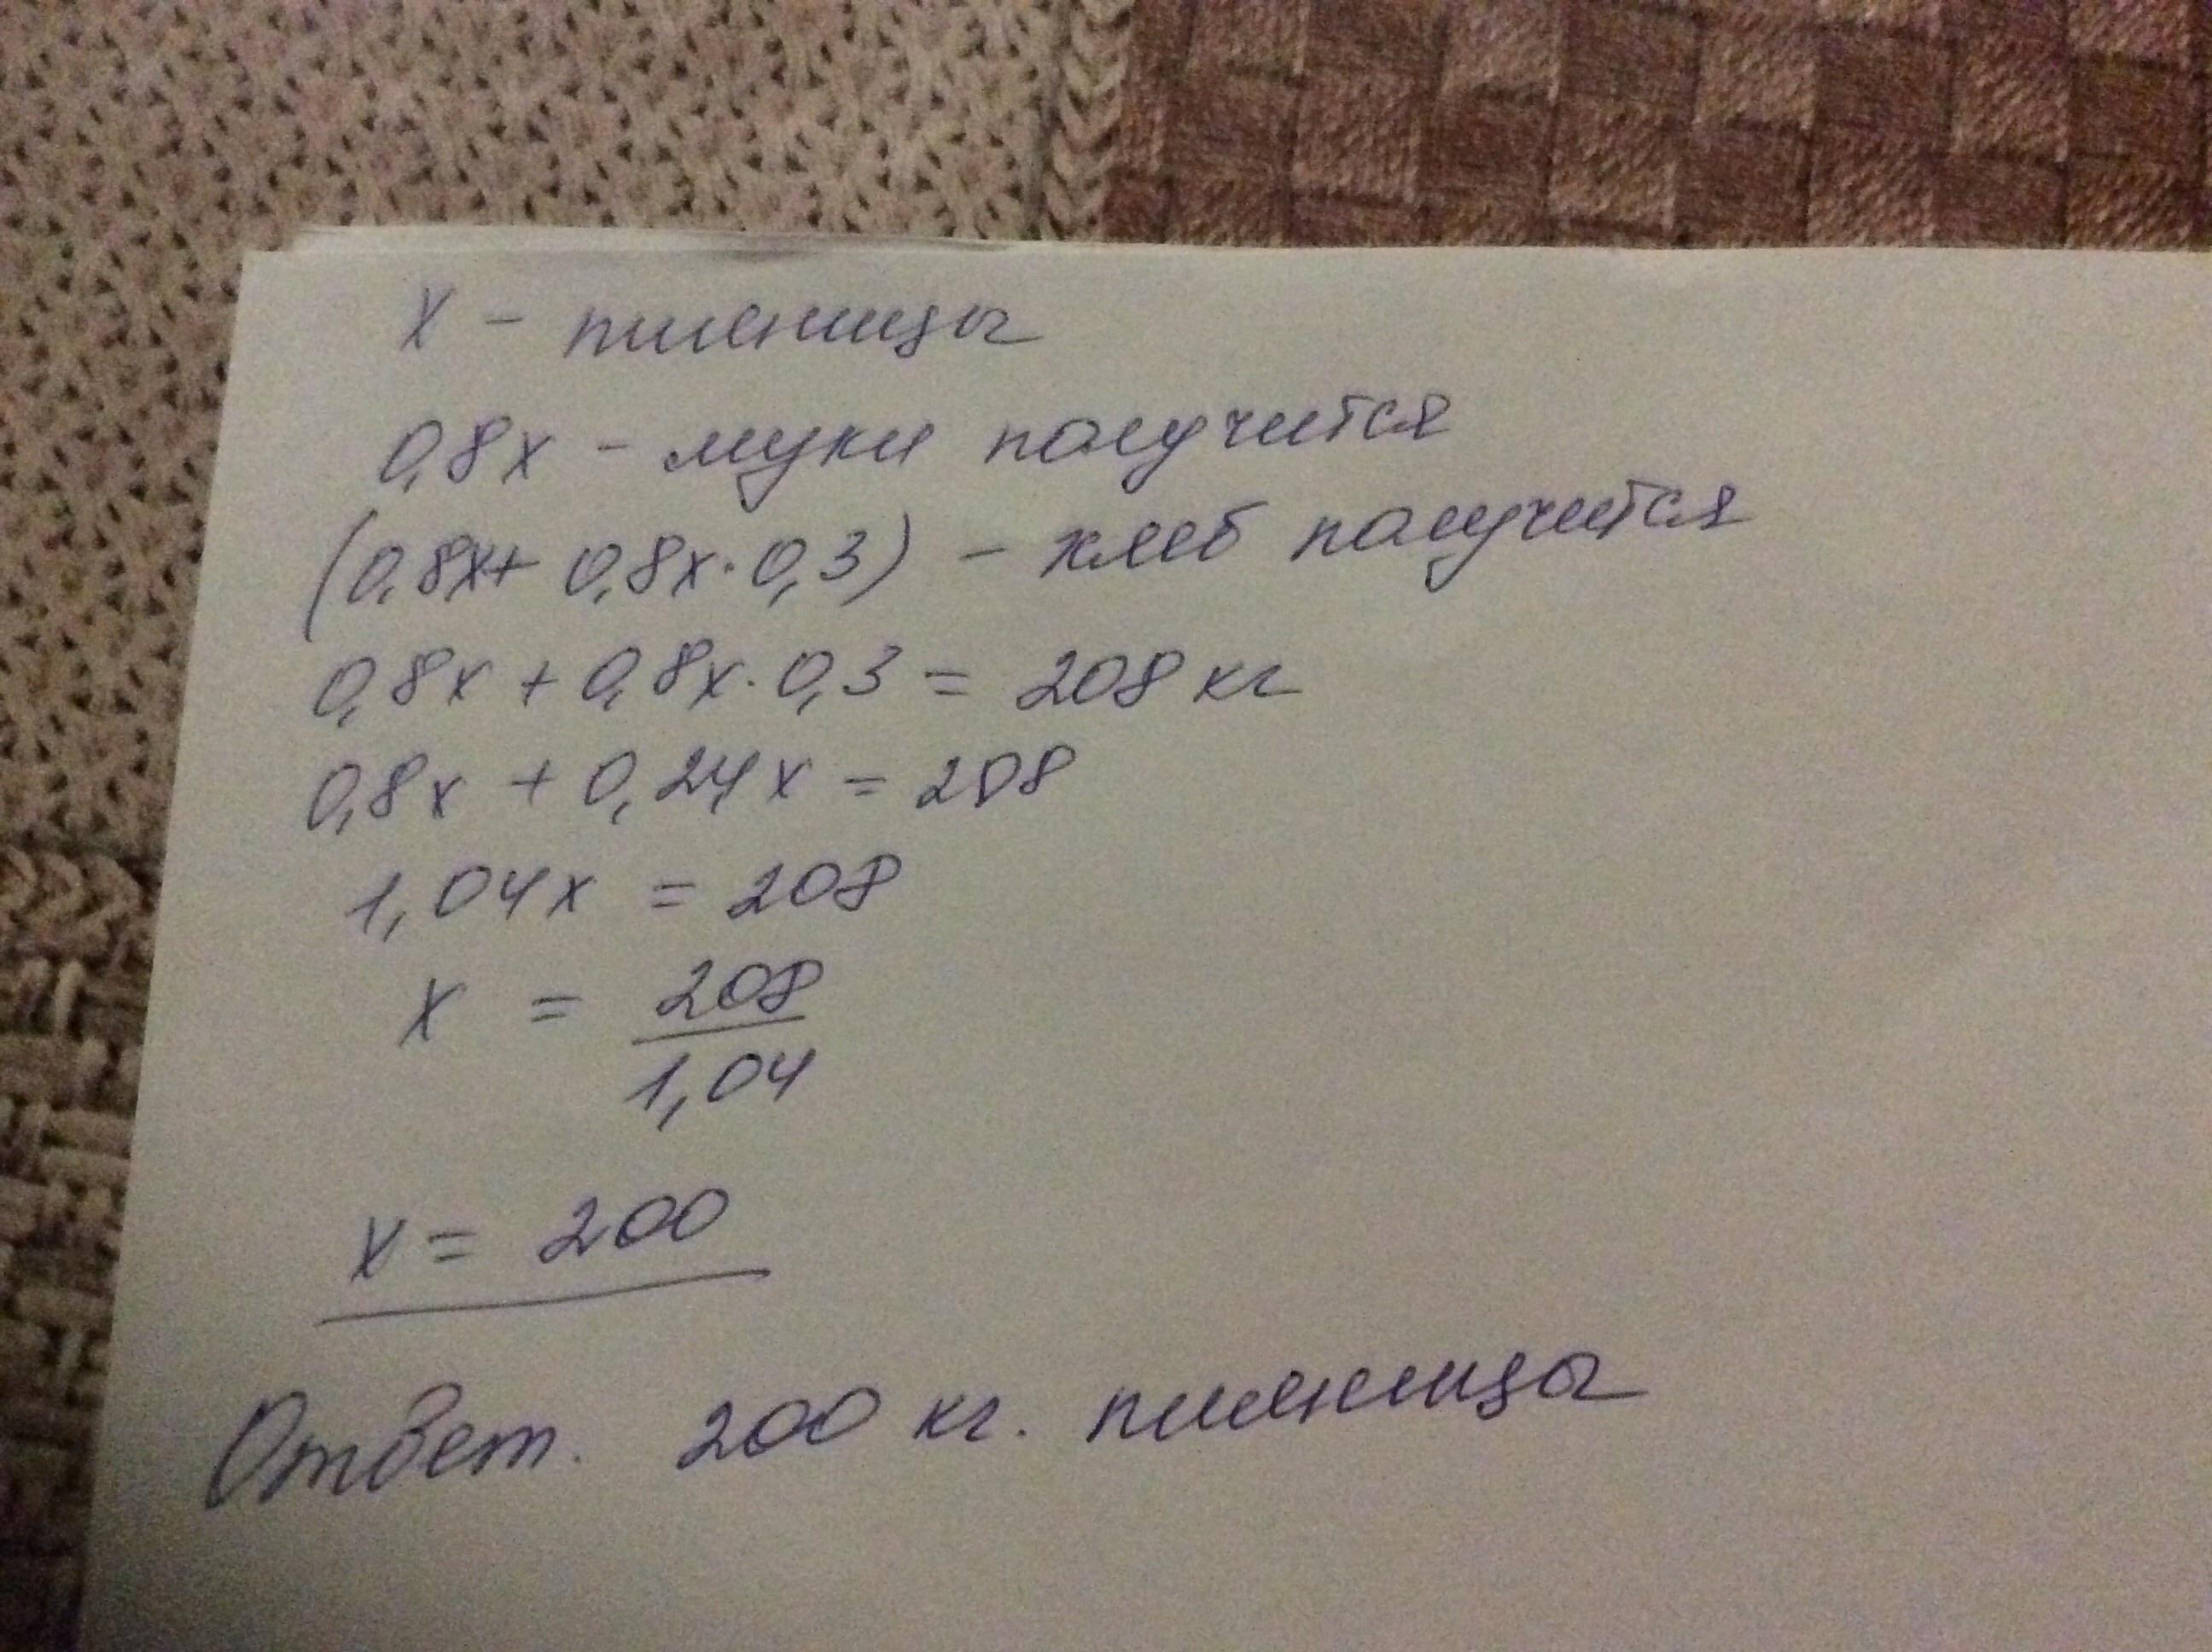 x - пшеницы
0,8x - муки получится
(0,8x+ 0,8x·0,3) - хлеб получится
0,8x + 0,8x·0,3 = 208 кг
0,8x + 0,24x = 208
1,04x = 208
x = 208/1,04
x = 200
Ответ. 200 кг. пшеницы